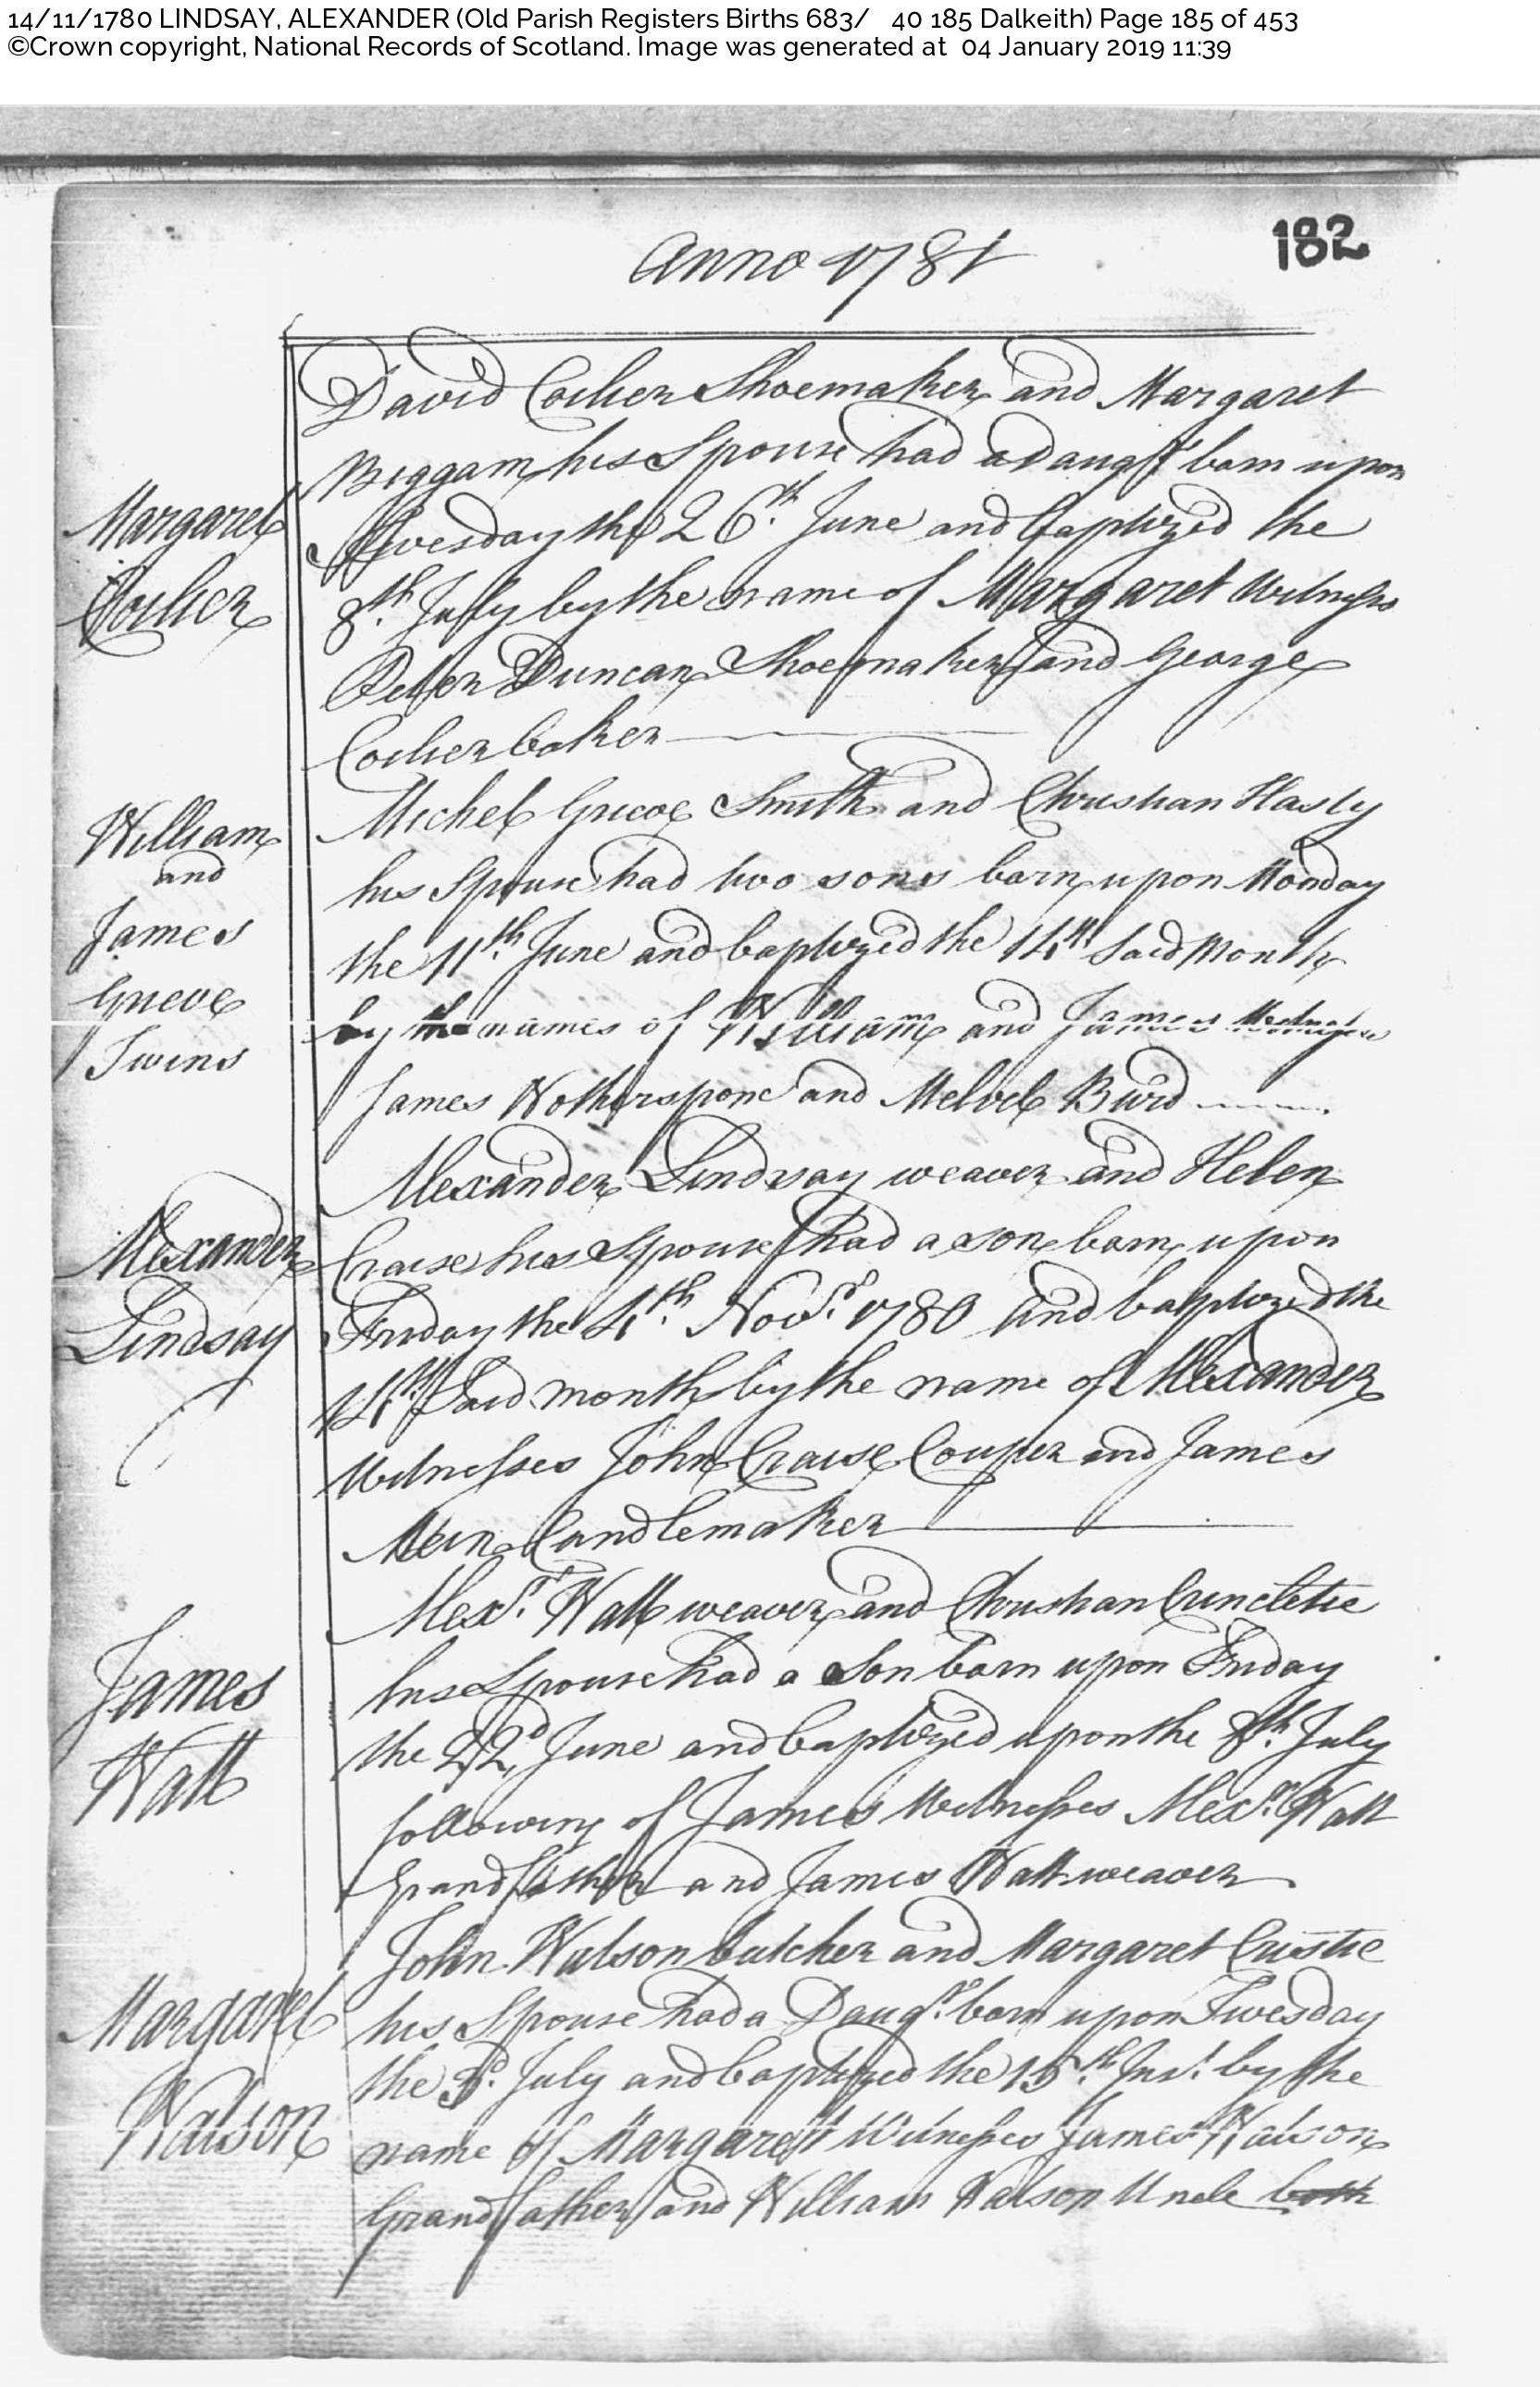 14/11/1780 LINDSAY, ALEXANDER (Old Parish Registers Births 683/ 40 185 Dalkeith) Page 185 of 453
©Crown copyright, National Records of Scotland. Image was generated at 04 January 2019 11:39
182
Anno 1781
Margaret
David Shoemaker and Margaret
Biggam his Spouse had a Daugr born upon
Tuesday the 26th June and baptized the
8th July by the name of Margaret Witnesses
Peter Duncan Shoemaker and George
baker
William
and
James
Grieve
Twins
Michel Grieve Smith and Christian Hasty
his Spouse had two sons born upon Monday
the 11th June and baptized the 14th Said Month
by the names of William and James Witnesses
James Wotherspone and Melvel Burd
Alexander
Lindsay
Alexander Lindsay weaver and Helen
Craise his Spouse had a son born upon
Friday the 4th Novr 1780 and baptized the
14th Said month by the name of Alexander
Witnesses John Craise Couper and James
Candlemaker
James
Watt
Alexr Watt weaver and Christian
his Spouse had a Son born upon Friday
the 22d June and baptized upon the 8th July
following of James Witnesses Alexr Watt
Grandfather and James Watt weaver
Margaret
Watson
John Watson butcher and Margaret Cristie
his Spouse had a Daugr born upon Twesday
the 3d July and baptized the 15th Inst by the
name of Margaret Witnesses James Watson
Grandfather and William Watson Uncle both